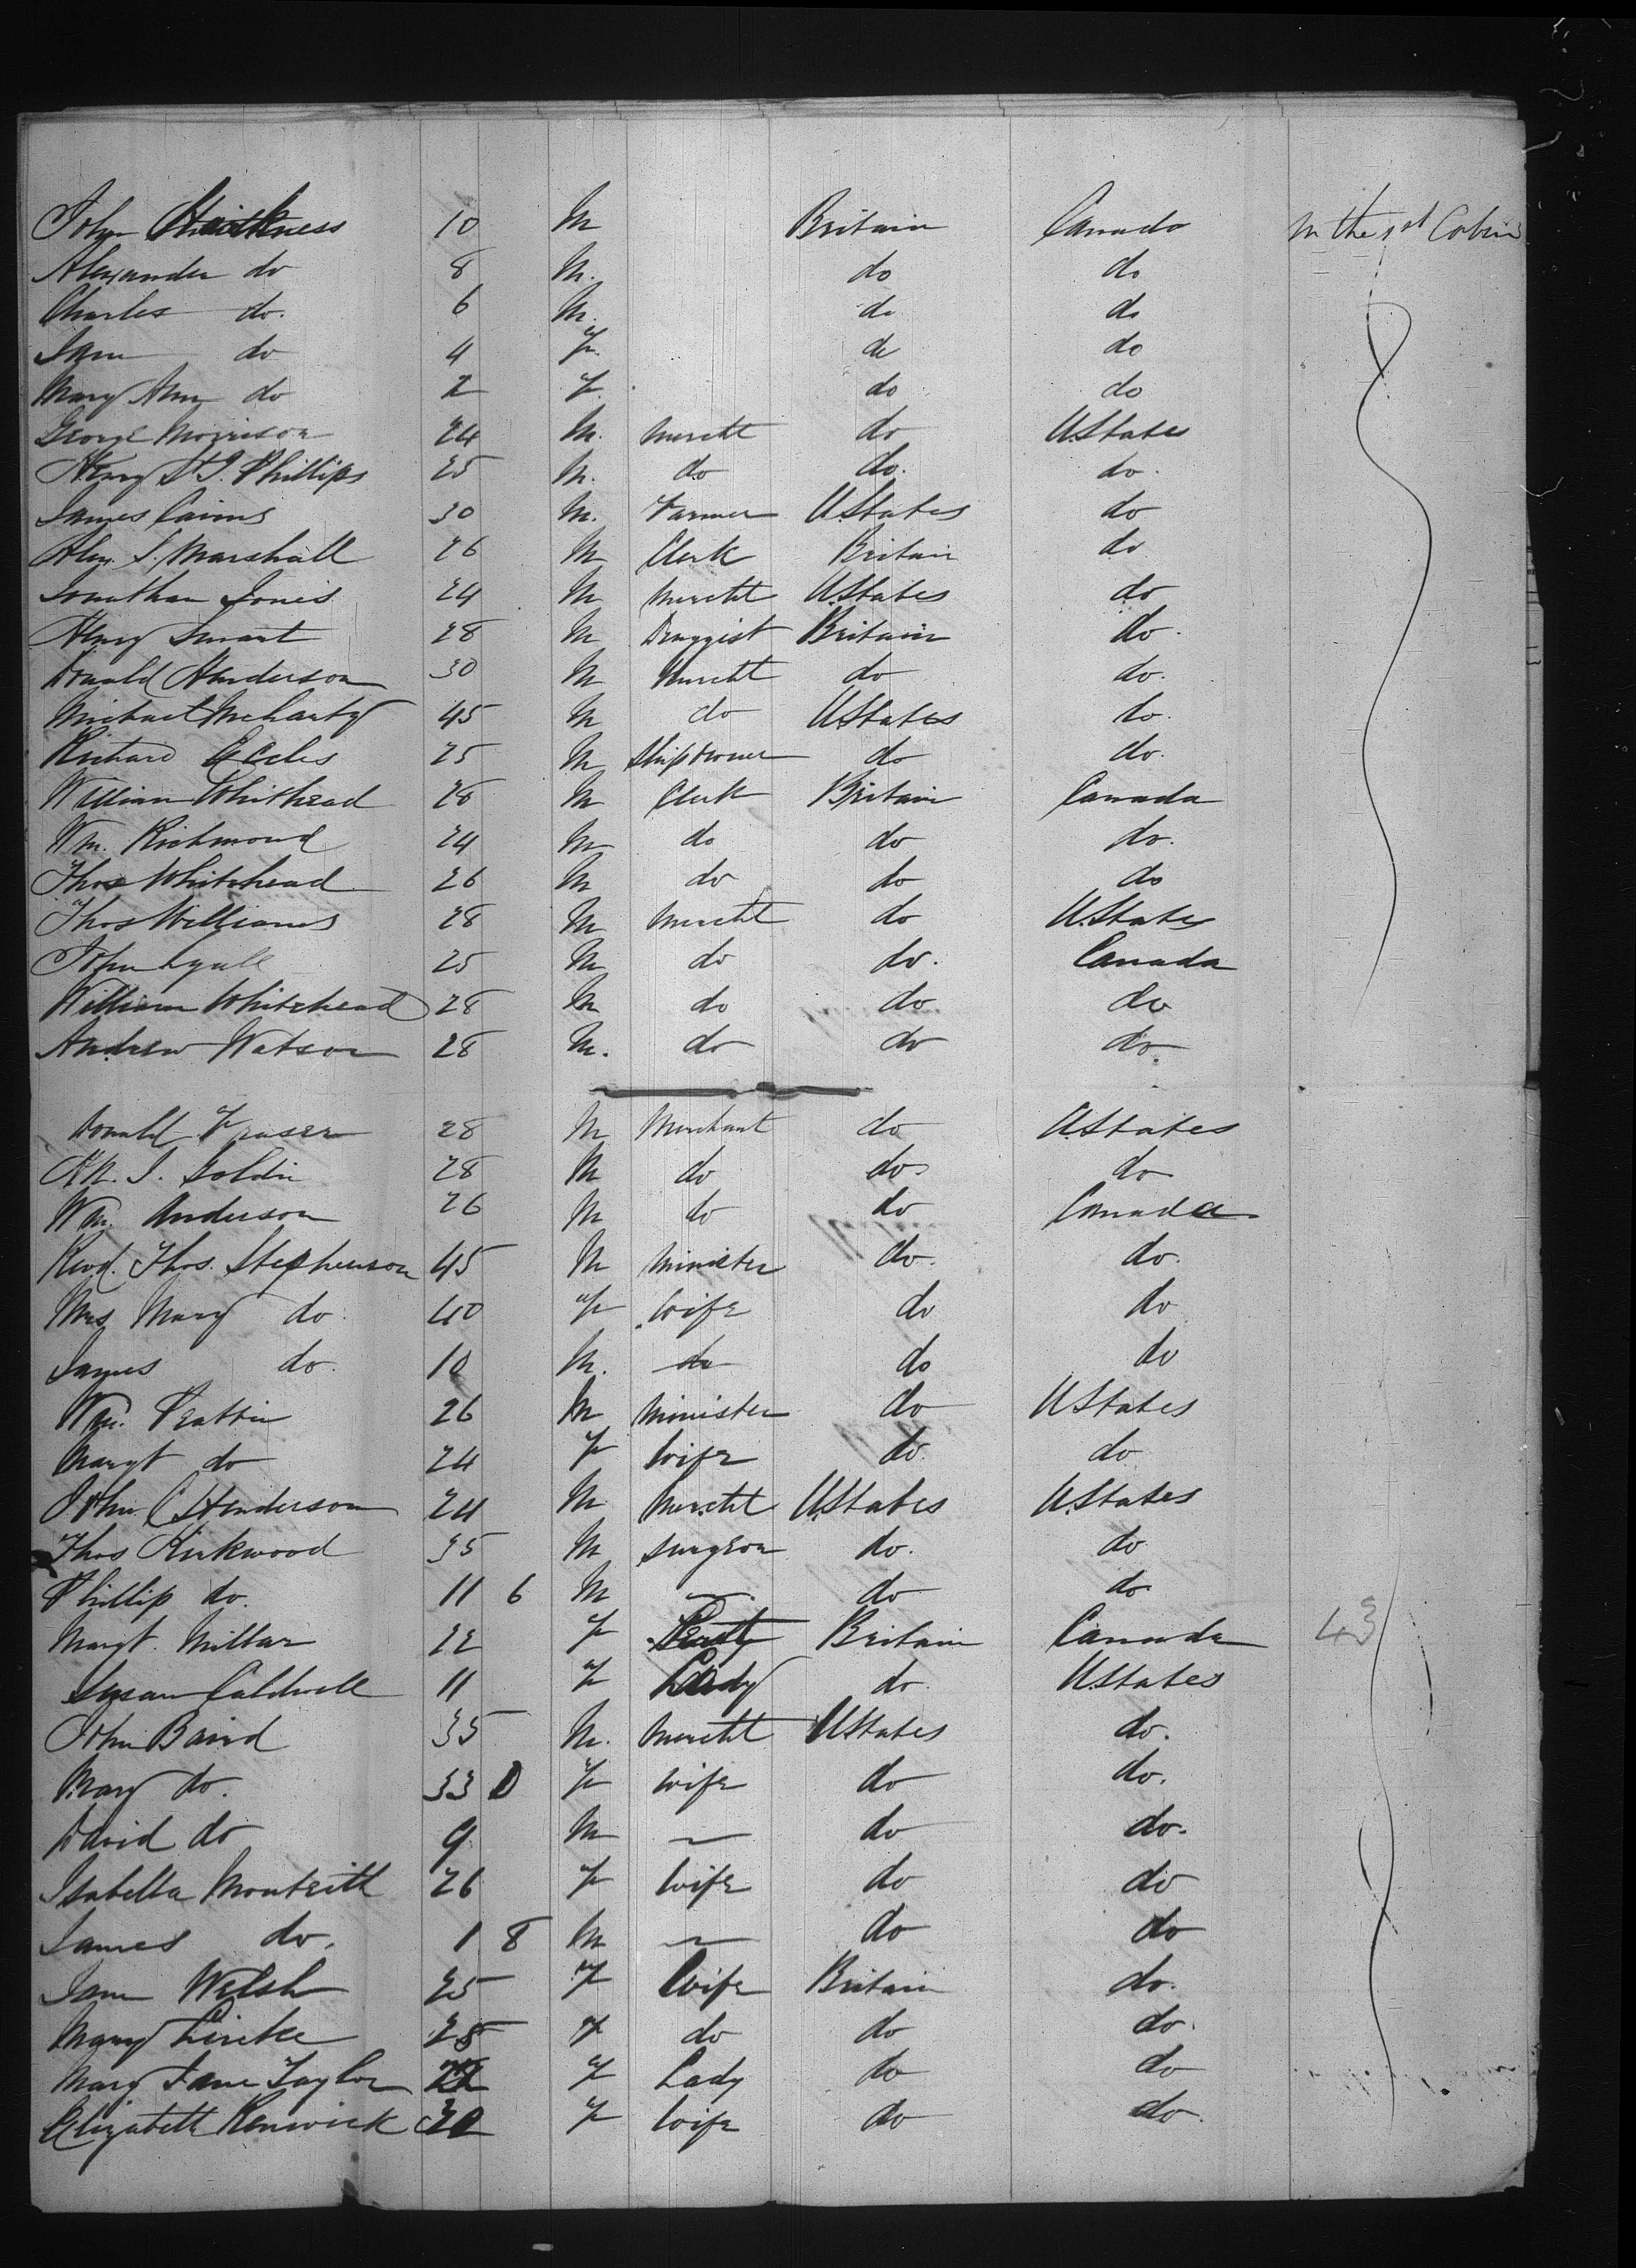 John Harkness 10 M Britain Canada In the 1st Cabin
Alexander do 8 M. do do
Charles do. 6 M. do do
Jane do 4 F. do do
Mary Ann do 2 F. do do
George Morrison 24 M. Mercht do U.States
Henry St J. Phillips 25 M. do do. do.
James Cairns 30 M. Farmer U.States do
Alex. S. Marshall 26 M Clerk Britain do
Jonathan Jones 24 M Mercht U.States do
Henry Smart 28 M Druggist Britain do.
Donald Henderson 30 M Mercht do do.
Michael 45 M do U.States do.
Richard Eccles 25 M Shipowner do do.
William Whithead 28 M Clerk Britain Canada
Wm. Richmond 24 M do do do.
Thos Whitehead 26 M do do do
Thos Williams 28 M Mercht do U.States
John Lyall 25 M do do. Canada
William Whitehead 28 M do do do
Andrew Watson 28 M. do do do.
Donald Fraser 28 M Merchant do U.States
J. Goldie 28 M do do. do
Wm. Anderson 26 M do do Canada
Revd. Thos. Stephenson 45 M Minister do. do.
Mrs Mary do 40 F wife do do
James do. 10 M. do do do
Wm. 26 M Minister do U.States
Margt do 24 F wife do. do
John C Henderson 24 M Mercht U.States U.States
Thos Kirkwood 35 M Surgeon do. do
Phillip do. 11 6 M — do do
Margt. Millar 22 F Britain Canada 43
Susan Caldwell 11 F Lady do. U.States
John Baird 35 M. Mercht U.States do.
Mary do. 33 0 F wife do do.
David do 9 M — do do.
Isabella Monteith 26 F wife do do
James do. 1 8 M — do do
Jane Welsh 25 F wife Britain do.
Mary 25 F do do do.
Mary Jane Taylor 22 F Lady do do
Elizabeth Renwick 30 F wife do do.